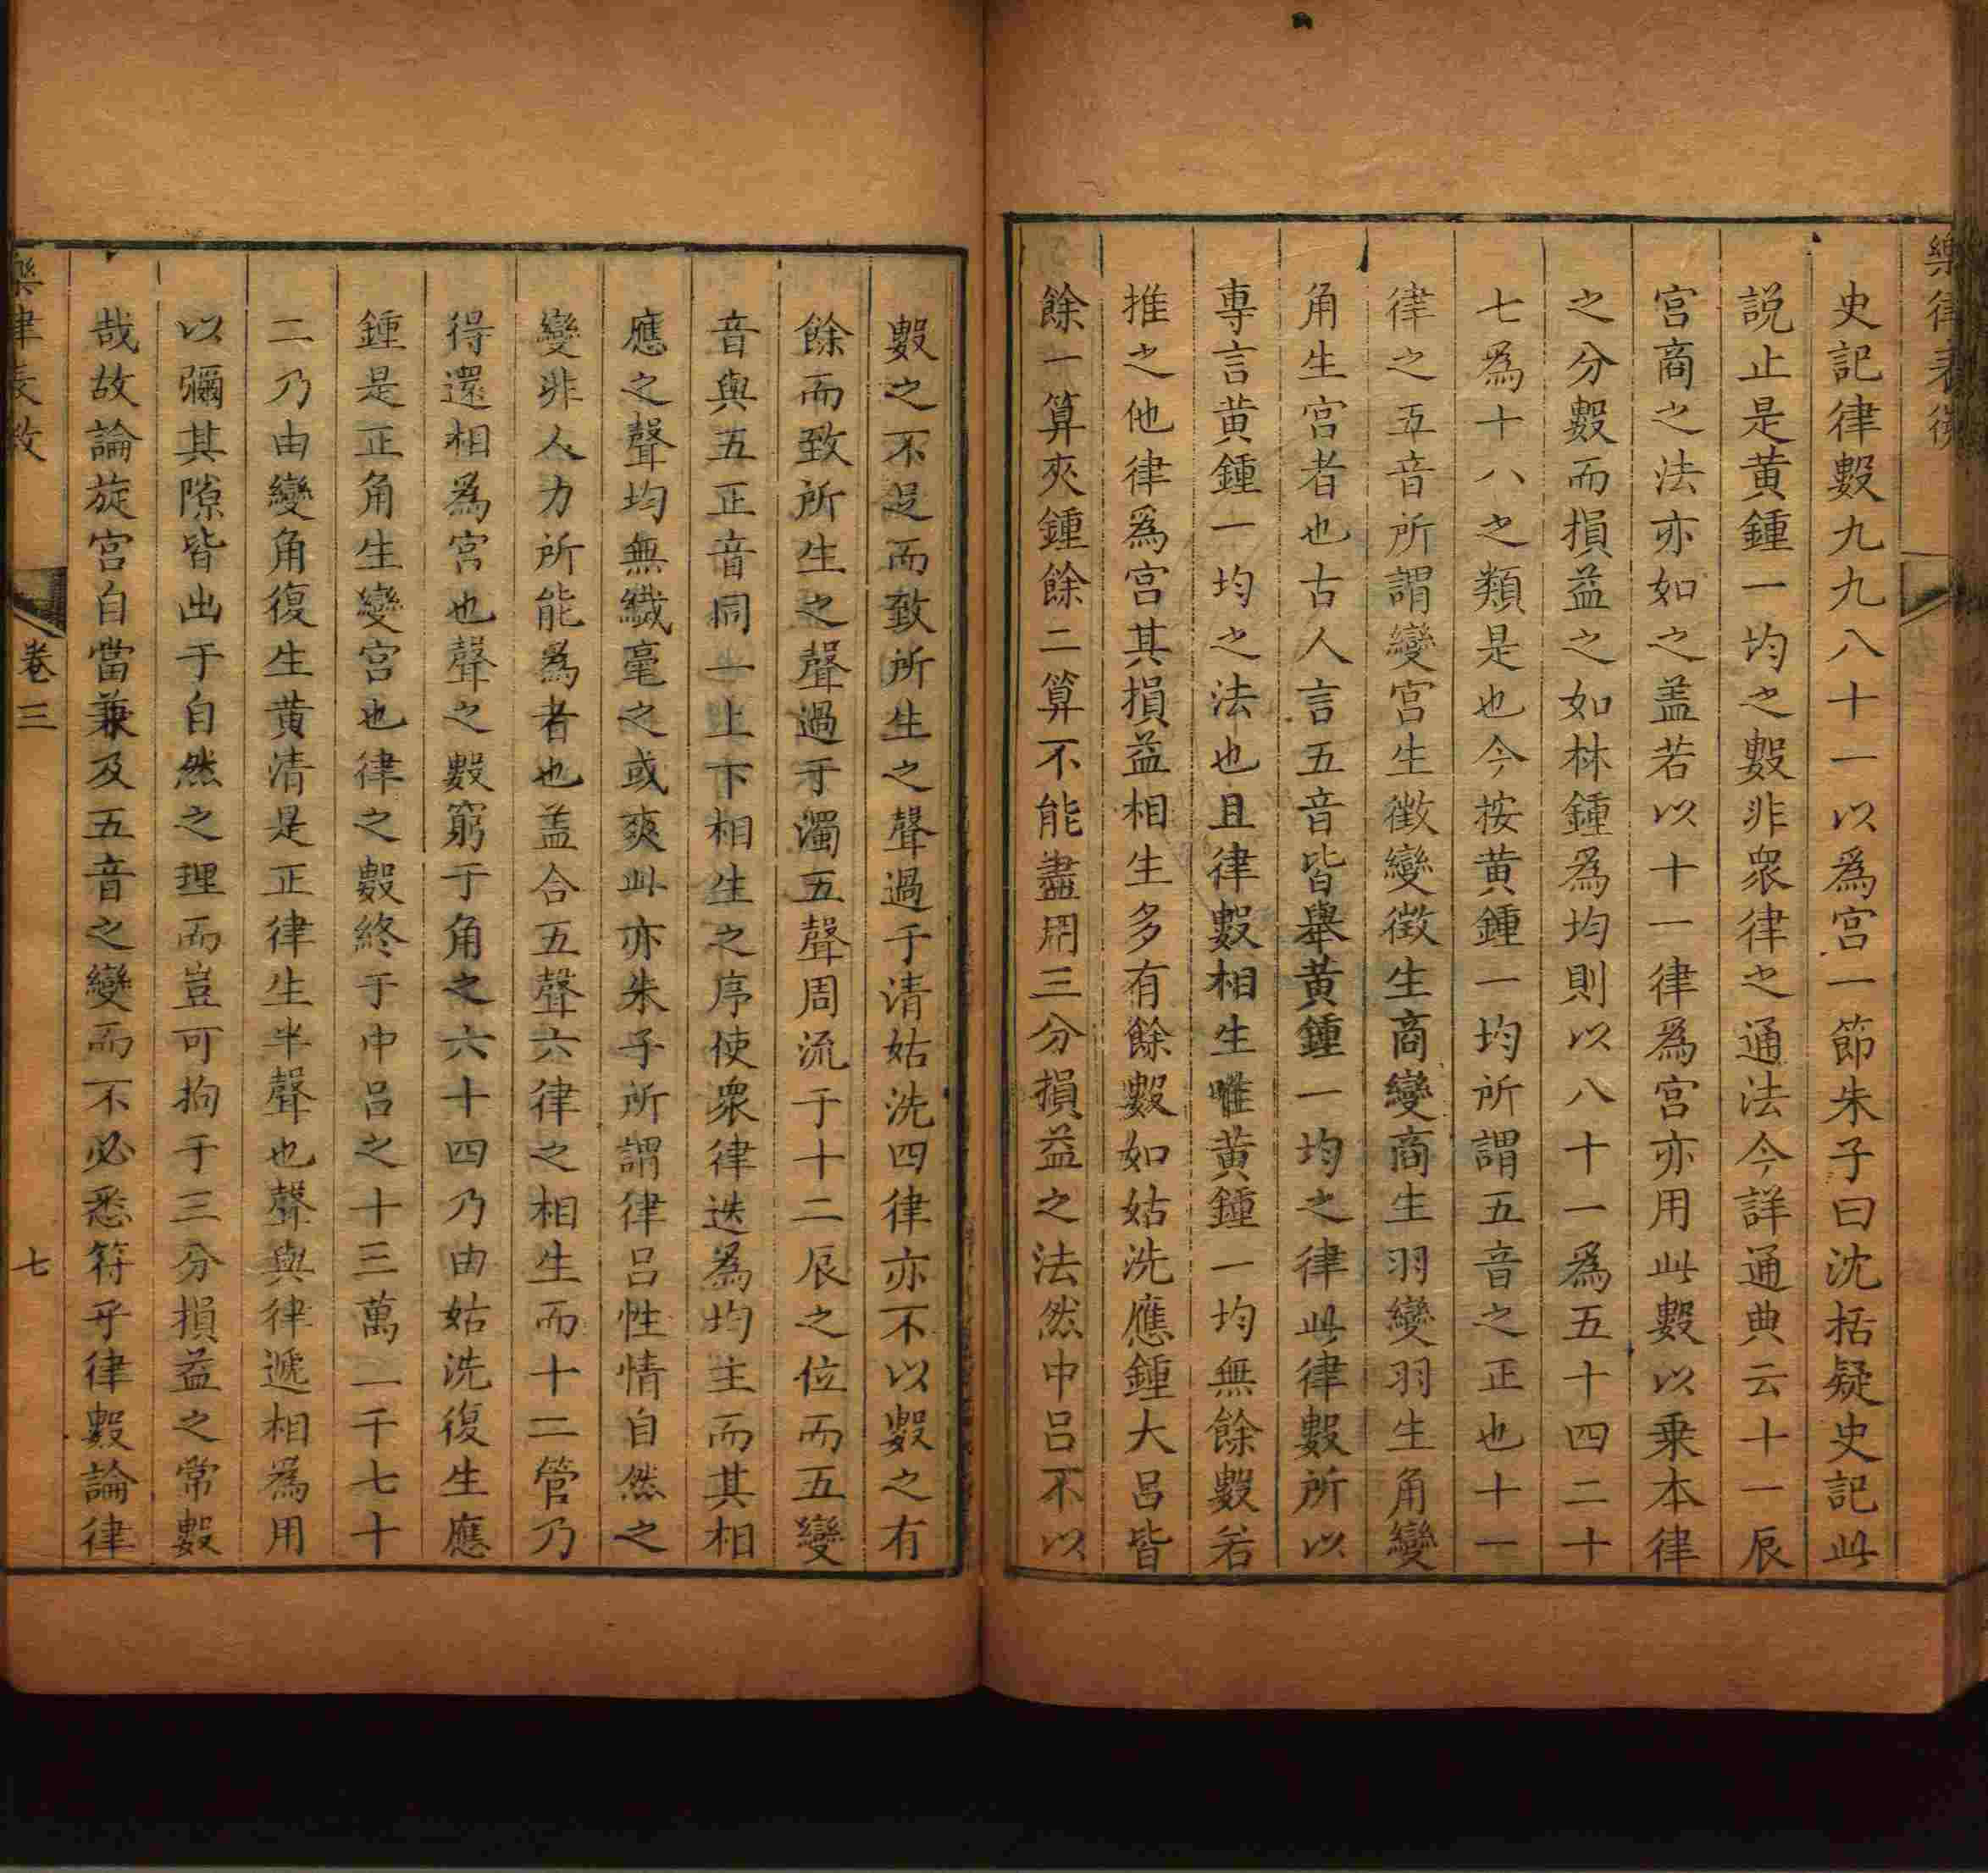 樂律表微
史記律數九九八十一以爲宫一節朱子曰沈括疑史記此
説止是黄鍾一均之數非衆律之通法今詳通典云十一辰
宫商之法亦如之盖若以十一律爲宫亦用此數以乗本律
之分數而損益之如林鍾爲均則以八十一爲五十四二十
七爲十八之類是也今按黄鍾一均所謂五音之正也十一
律之五音所謂變宫生徵變徵生商變商生羽變羽生角變
角生宫者也古人言五音皆舉黄鍾一均之律此律數所以
専言黄鍾一均之法也且律數相生唯黄鍾一均無餘數若
推之他律爲宫其損益相生多有餘數如姑洗應鍾大吕皆
餘一算夾鍾餘二算不能盡用三分損益之法然中吕不以
數之不足而致所生之聲過于清姑洗四律亦不以數之有
餘而致所生之聲過于濁五聲周流于十二辰之位而五變
音與五正音同一上下相生之序使衆律迭爲均主而其相
應之聲均無纎毫之或爽此亦朱子所謂律吕性情自然之
變非人力所能爲者也盖合五聲六律之相生而十二管乃
得還相爲宫也聲之數窮于角之六十四乃由姑洗復生應
鍾是正角生變宫也律之數終于中吕之十三萬一千七十
二乃由變角復生黄清是正律生半聲也聲與律遞相爲用
以彌其隙皆出于自然之理而豈可拘于三分損益之常數
哉故論旋宫自當兼及五音之變而不必悉符乎律數論律
樂律表微
卷三
七